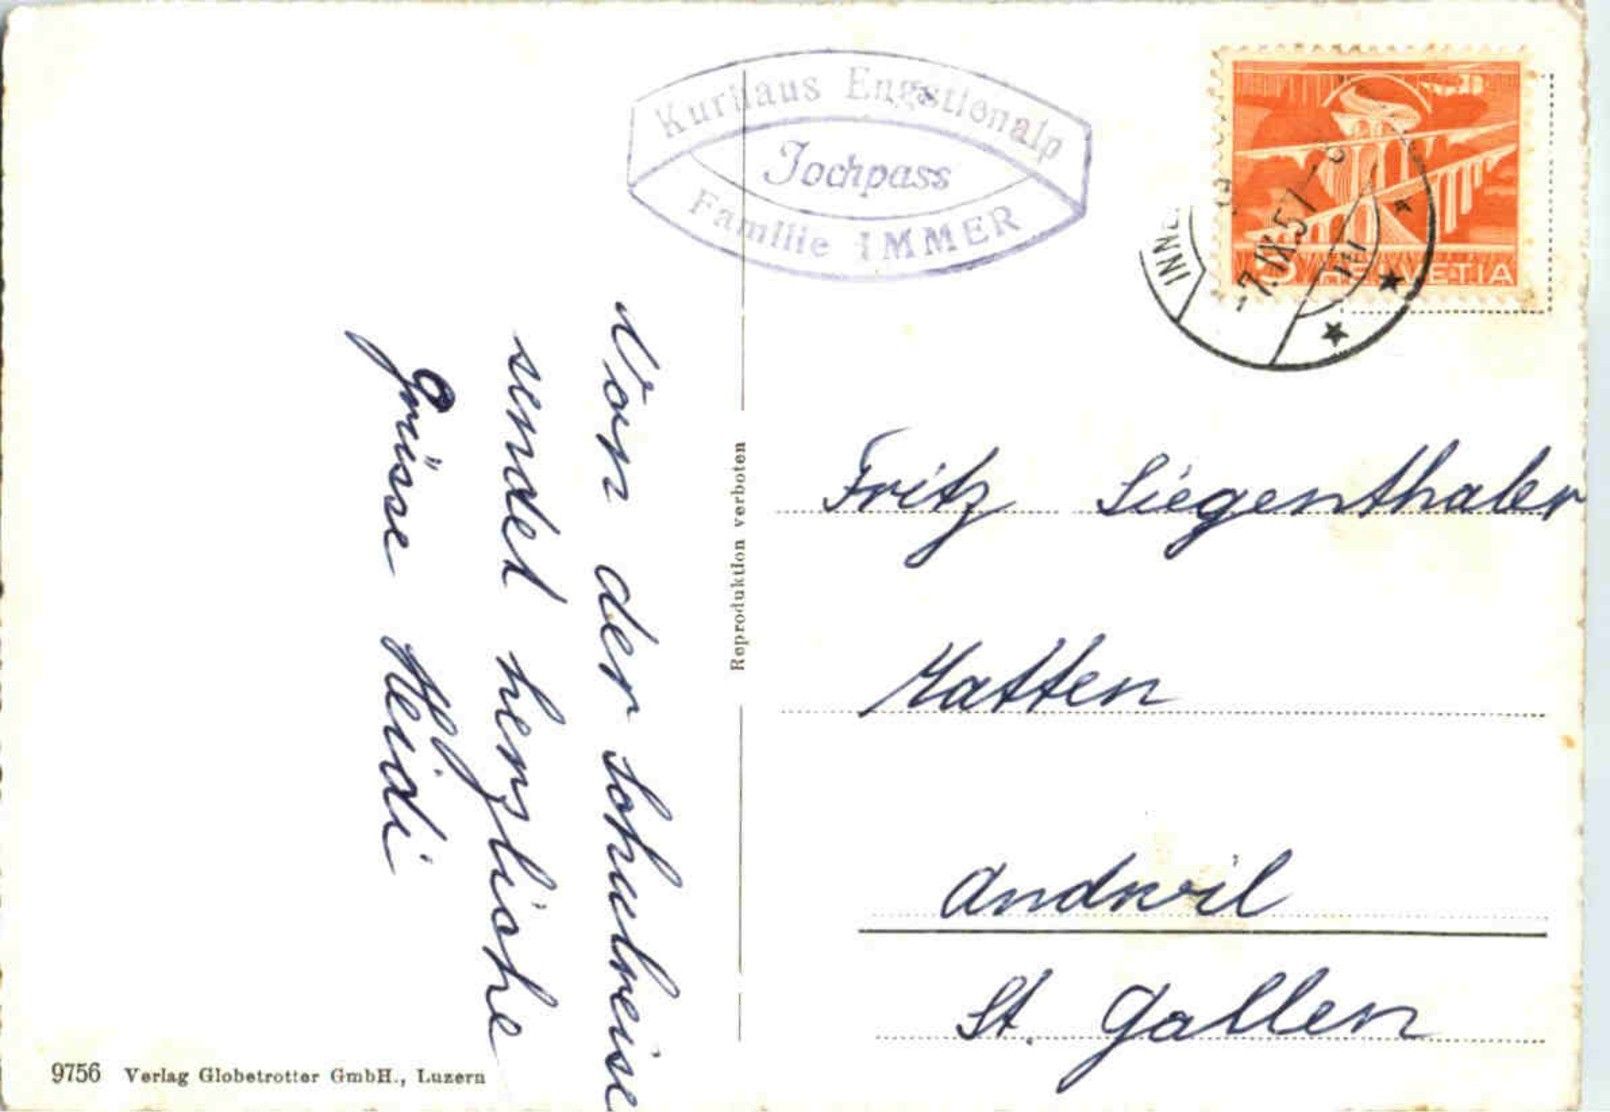 Kurhaus Engstlenalp
Jochpass
Familie IMMER
5 HELVETIA
-7.IX.57-
INN
Von der Schulreise
sendet herzliche
Grüsse Heidi
Reproduktion verboten
Fritz Siegenthaler
Matten
Andwil
St. Gallen
9756 Verlag Globetrotter GmbH., Luzern